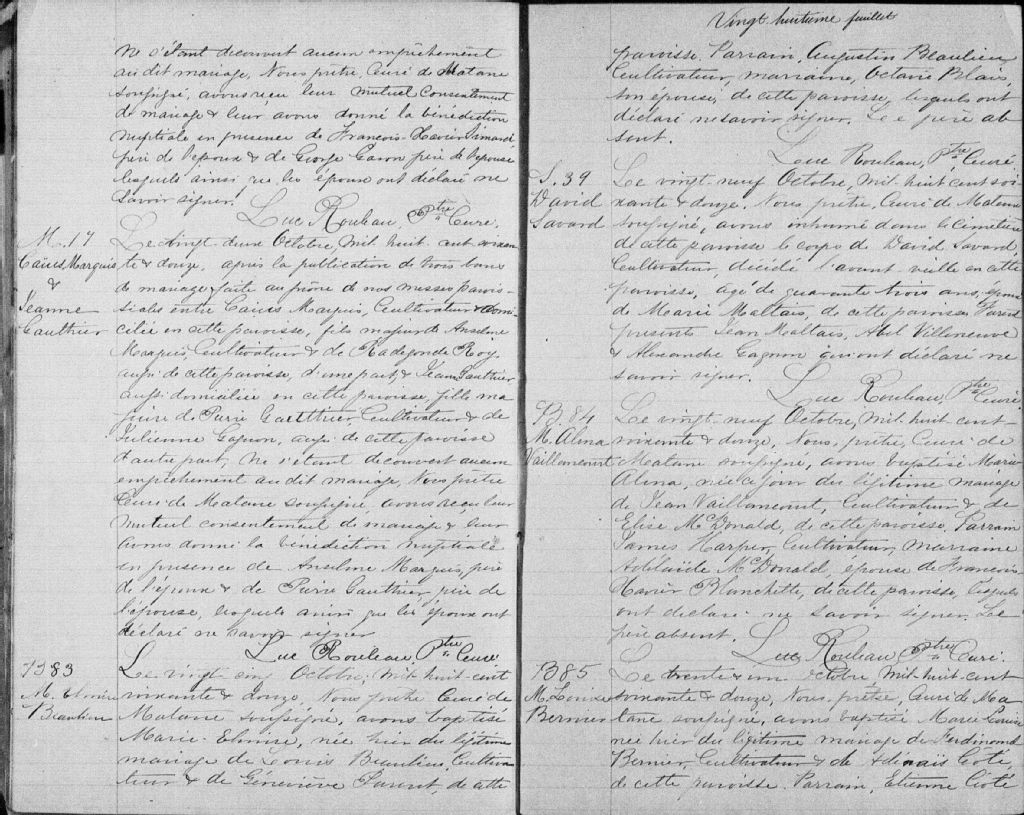 ne s'étant decouvert aucun empêchement
au dit mariage, Nous prêtre, Curé de Matane
soussigné, avons reçu leur mutuel Consentement
de mariage & leur avons donné la bénédiction
nuptiale en presence de François-Xavier Simard
père de l'epoux & de George Gavon père de l'epouse
lesquels ainsi que les époux ont déclaré ne
savoir signer.
Luc Rouleau Ptre Curé.
M. 17
Caiüs Marquis
&
Jeanne
Gauthier
Le vingt deux Octobre, Mil huit cent soixan
te & douze, après la publication de trois bans
de mariage faite au prône de nos messes parois-
siales entre Caiüs Marquis, Cultivateur & domi
cilié en cette paroisse, fils majeur de Anselme
Marquis, Cultivateur & de Radegonde Roy
aussi de cette paroisse, d'une part, & Jeanne Gauthier
aussi domiciliée en cette paroisse, fille ma
jeure de Pierre Gauthier, Cultivateur & de
Julienne Gagnon, aussi de cette paroisse
d'autre part, ne s'étant decouvert aucun
empêchement au dit mariage, Nous prêtre
Curé de Matane soussigné, avons reçu leur
mutuel consentement de mariage & leur
avons donné la bénédiction nuptiale
en presence de Anselme Marquis, père
de l'époux & de Pierre Gauthier, père de
l'épouse, lesquels ainsi que les époux ont
déclaré ne savoir signer
Luc Rouleau Ptre Curé
B83
M. Elmire
Beaulieu
Le vingt cinq Octobre, Mil huit cent
soixante & douze, Nous prêtre Curé de
Matane soussigné, avons baptisé
Marie-Elmire, née hier du légitime
mariage de Louis Beaulieu, Cultiva
teur & de Géneviève Parent, de cette
Vingt huitieme feuillet
paroisse. Parrain, Augustin Beaulieu
Cultivateur, marraine, Octavie Blais,
son épouse, de cette paroisse, lesquels ont
déclaré ne savoir signer. Le père ab
sent.
Luc Rouleau, Ptre Curé
S. 39
David
Savard
Le vingt-neuf Octobre, Mil huit cent soi
xante & douze, Nous prêtre, Curé de Matane
soussigné, avons inhumé dans le Cimetière
de cette paroisse le corps de David Savard
Cultivateur, décédé l'avant veille en cette
paroisse, agé de quarante trois ans, époux
de Marie Maltais, de cette paroisse. Furent
presents Jean Maltais, Abel Villeneuve
& Alexandre Gagnon qui ont déclaré ne
savoir signer.
Luc Rouleau, Ptre Curé
B. 84
M. Alma
Vaillancourt
Le vingt neuf Octobre, Mil huit cent
soixante & douze, Nous, prêtre, Curé de
Matane soussigné, avons baptisé Marie
Alma, née ce jour du légitime mariage
de Jean Vaillancourt, Cultivateur & de
Elise McDonald, de cette paroisse. Parrain
James Harper, Cultivateur, marraine
Adélaïde McDonald, épouse de François-
Xavier Blanchette, de cette paroisse, lesquels
ont déclaré ne savoir signer. Le
père absent.
Luc Rouleau, Ptre Curé.
B85
M. Louise
Bernier
Le trente & un Octobre Mil huit cent
soixante & douze, Nous, prêtre, Curé de Ma
tane soussigné, avons baptisé Marie Louise
née hier du légitime mariage de Ferdinand
Bernier, Cultivateur & de Adenais Coté,
de cette paroisse. Parrain, Etienne Coté